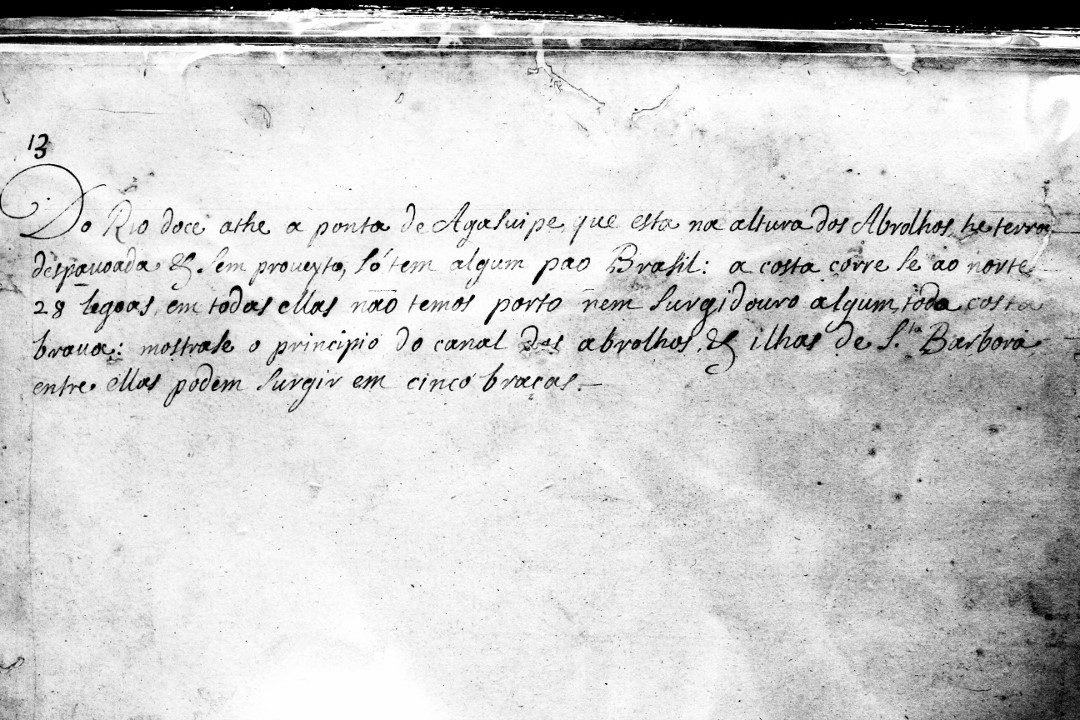 13
Do Rio doce athe a ponta de Agasuipe, que esta na altura dos Abrolhos, he terra
despauoada & sem proueyto, só tem algum pao Brasil: a costa corre se ao norte
28 legoas, em todas ellas não temos porto nem surgidouro algum, toda costa
braua: mostrase o principio do canal dos abrolhos, & ilhas de S.ta Barbora
entre ellas podem surgir em cinco braças.—